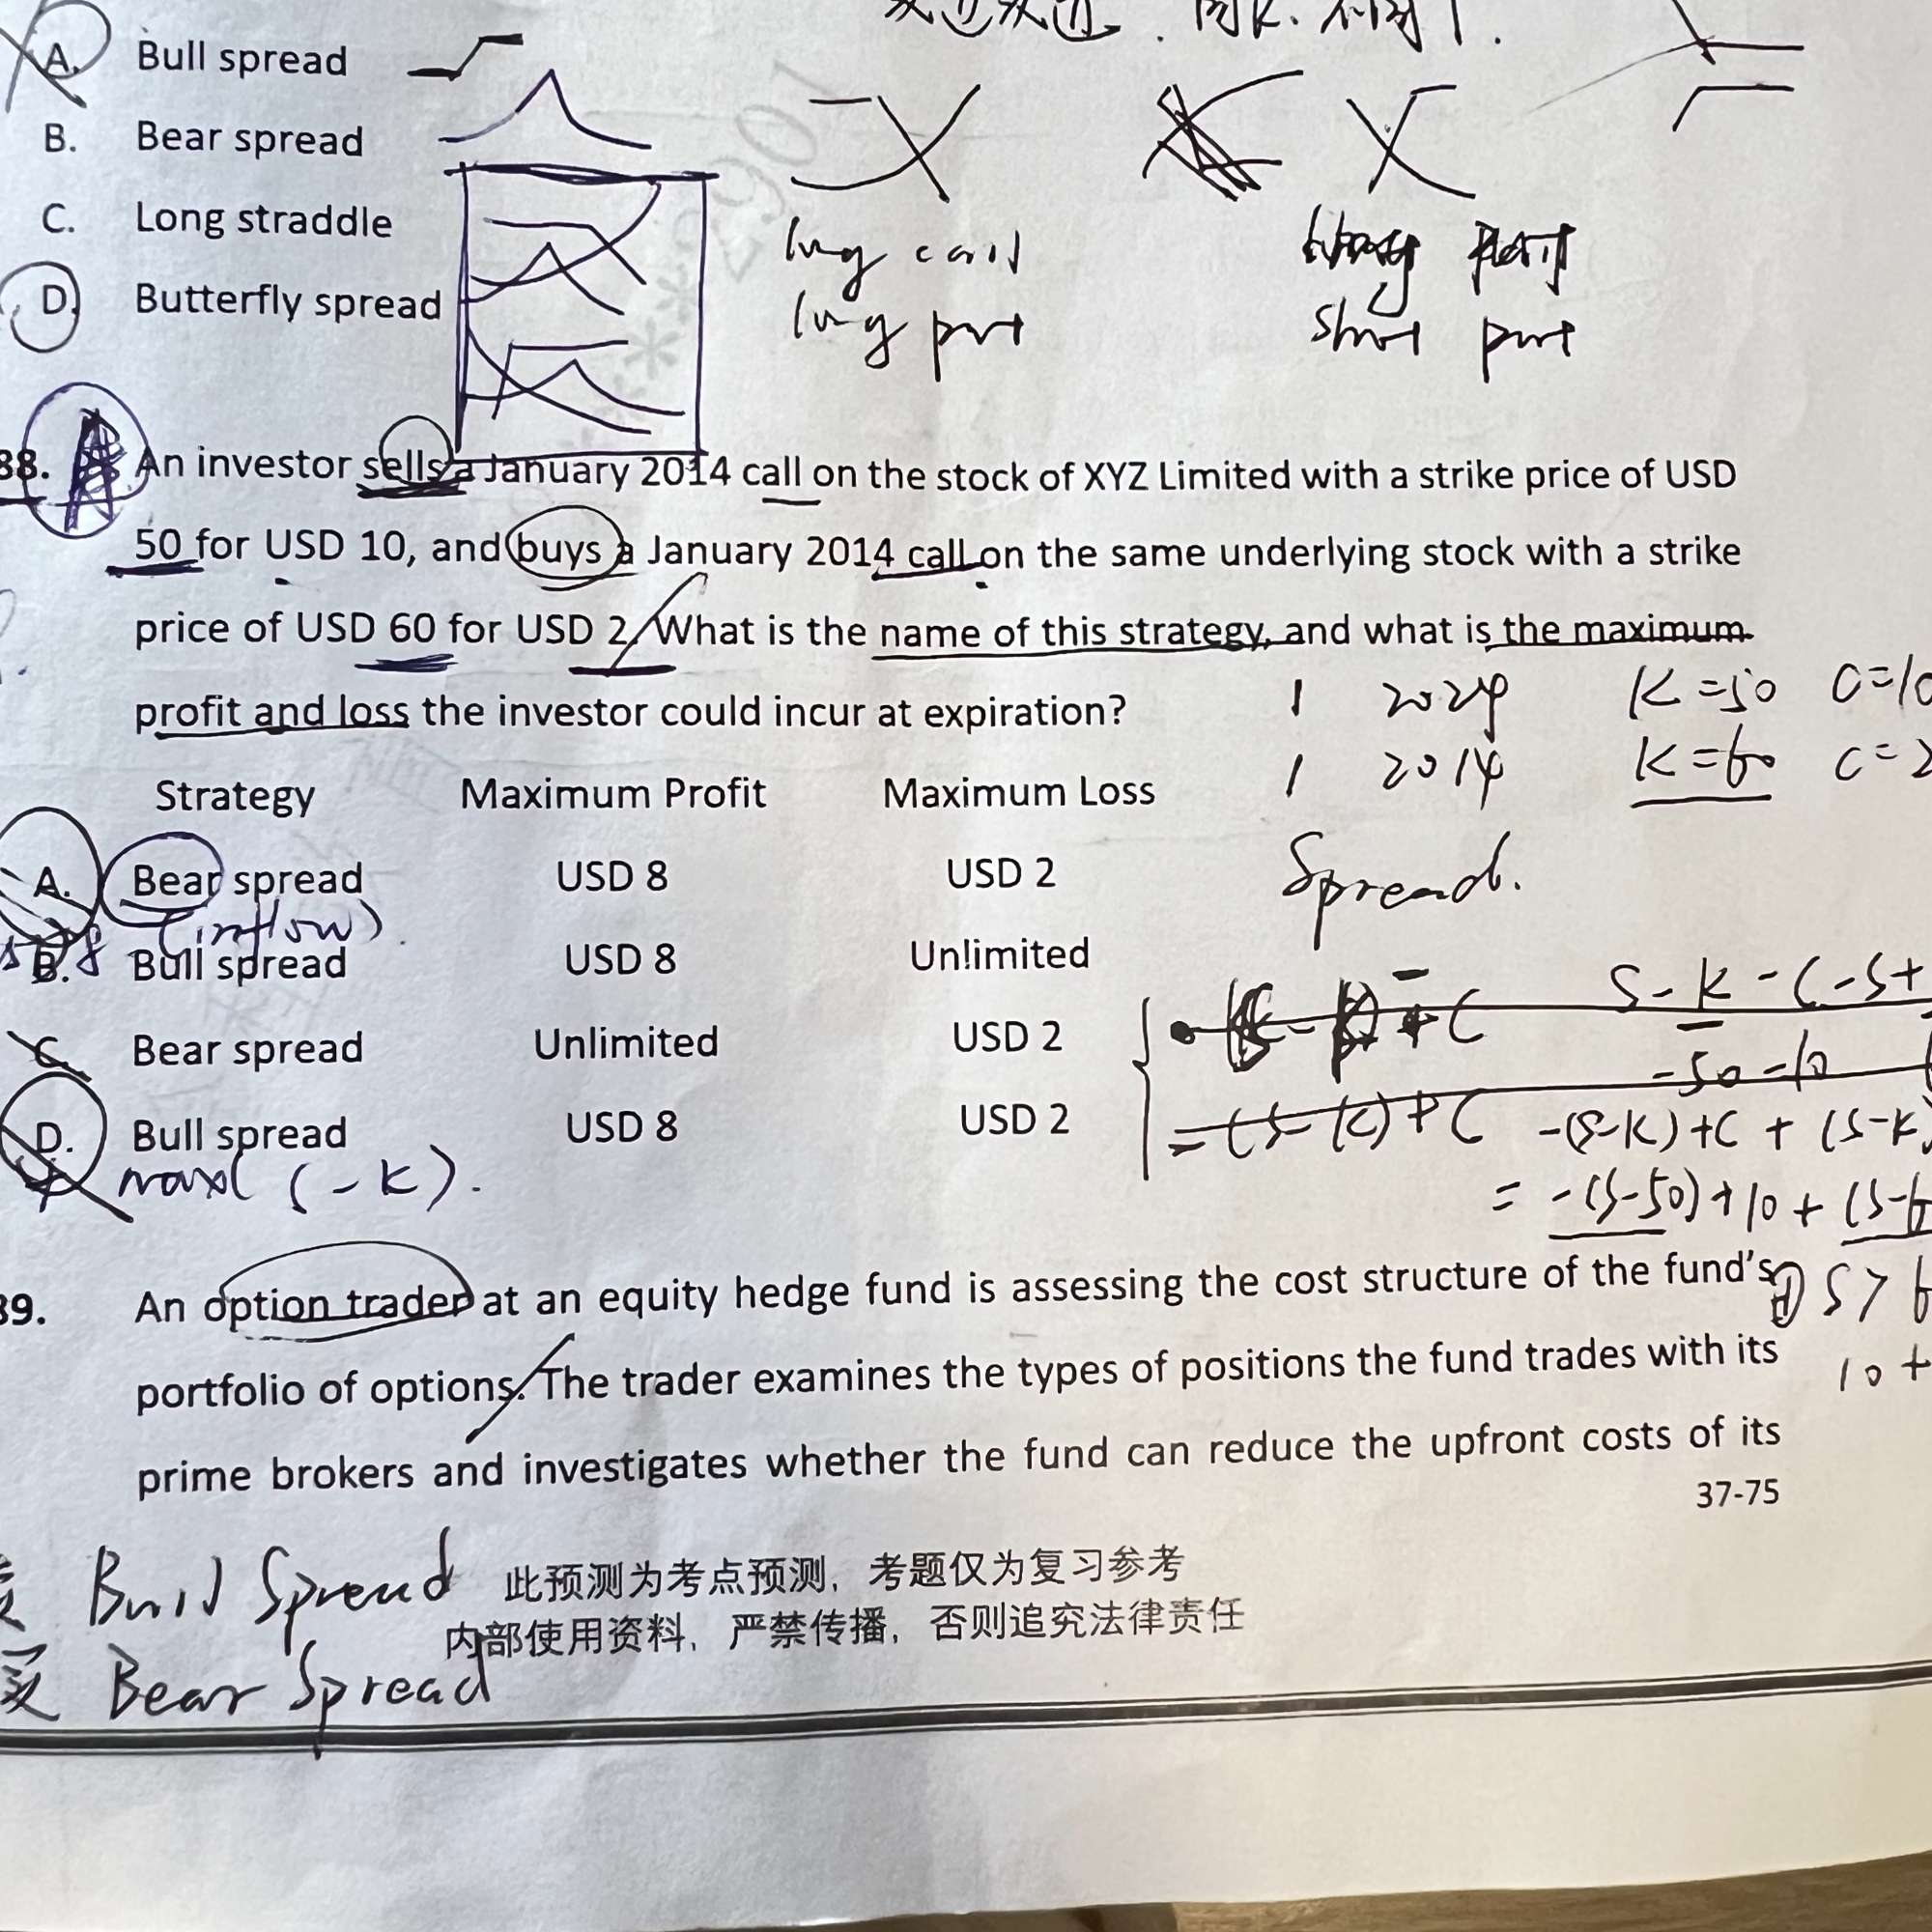 A. Bull spread
B. Bear spread
C. Long straddle
D. Butterfly spread
long call
long put
short put
38. An investor sells a January 2014 call on the stock of XYZ Limited with a strike price of USD
50 for USD 10, and buys a January 2014 call on the same underlying stock with a strike
price of USD 60 for USD 2. What is the name of this strategy, and what is the maximum
profit and loss the investor could incur at expiration?
1 2024 K=50 C=10
1 2014 K=60 C=2
Strategy Maximum Profit Maximum Loss
A. Bear spread USD 8 USD 2
Spread.
(inflow).
B. Bull spread USD 8 Unlimited
C. Bear spread Unlimited USD 2
-50-10
D. Bull spread USD 8 USD 2
-(S-K)+C+(S-K)
= -(S-50)+10+(S-6
39. An option trader at an equity hedge fund is assessing the cost structure of the fund's
S>6
portfolio of options. The trader examines the types of positions the fund trades with its
10+
prime brokers and investigates whether the fund can reduce the upfront costs of its
37-75
Bull Spread
此预测为考点预测，考题仅为复习参考
内部使用资料，严禁传播，否则追究法律责任
Bear Spread